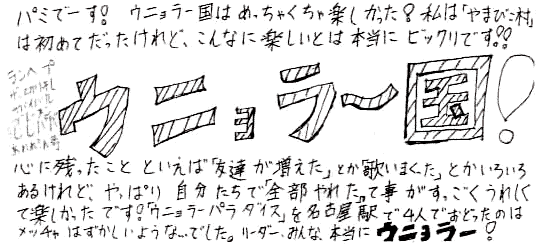 パミでーす! ウニョラー国はめっちゃくちゃ楽しかった!私は「やまびこ村」
は初めてだったけれど、こんなに楽しいとは本当にビックリです!!
ウニョラ〜国!
心に残ったこと といえば「友達が増えた」とか「歌いまくった」とかいろいろ
あるけれど、やっぱり 自分たちで「全部やれた」って事がすっごくうれしく
て楽しかったです!「ウニョラーパラダイス」を名古屋駅で4人でおどったのは
メッチャはずかしいような...でした。リーダー、みんな、本当にウニョラー!